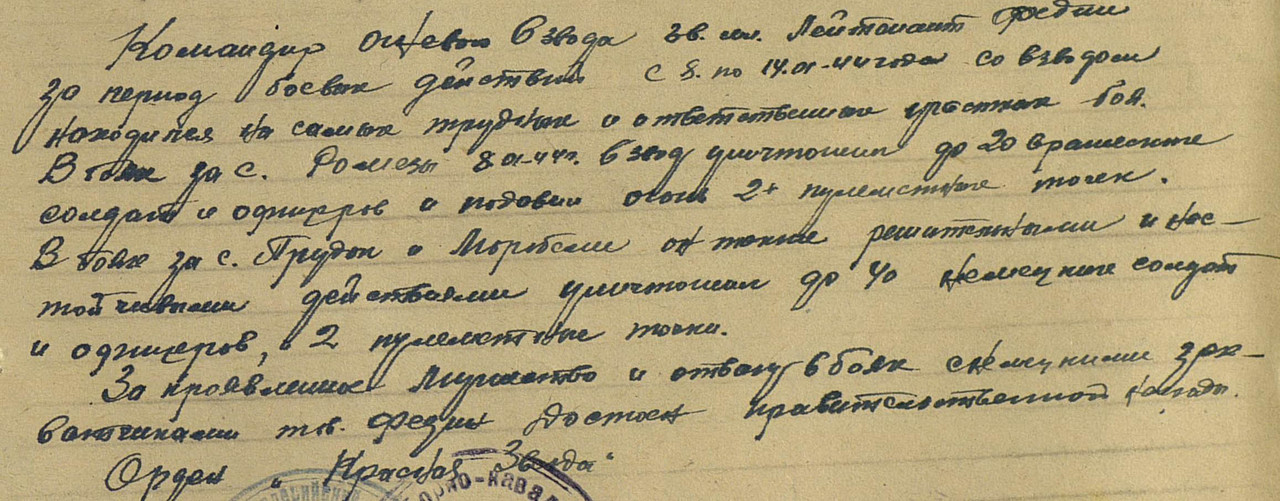 Командир огневого взвода гв. мл. Лейтенант Федин
за период боевых действий с 8. по 14.01-44 года со взводом
находился на самых трудных и ответственных участках боя.
В боях за с. 8 01-44 г. взвод уничтожил до 20 вражеских
солдат и офицеров и подавил огонь 2х пулеметных точек.
В боях за с. Прудок и он также решительными и нас-
тойчивыми действиями уничтожил до 40 немецких солдат
и офицеров, и 2 пулеметные точки.
За проявленное мужество и отвагу в боях с немецкими зах-
ватчиками тов. Федин достоен правительственной награды.
Орден „Красная Звезда"